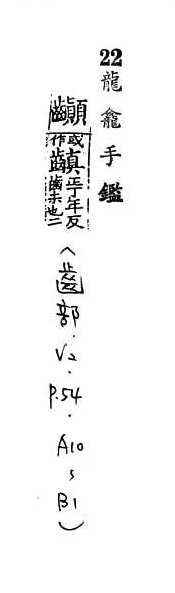 22 龍龕手鑑
或作齻丁年反齒末也二
（齒部．V2．P.54．A10，B1）